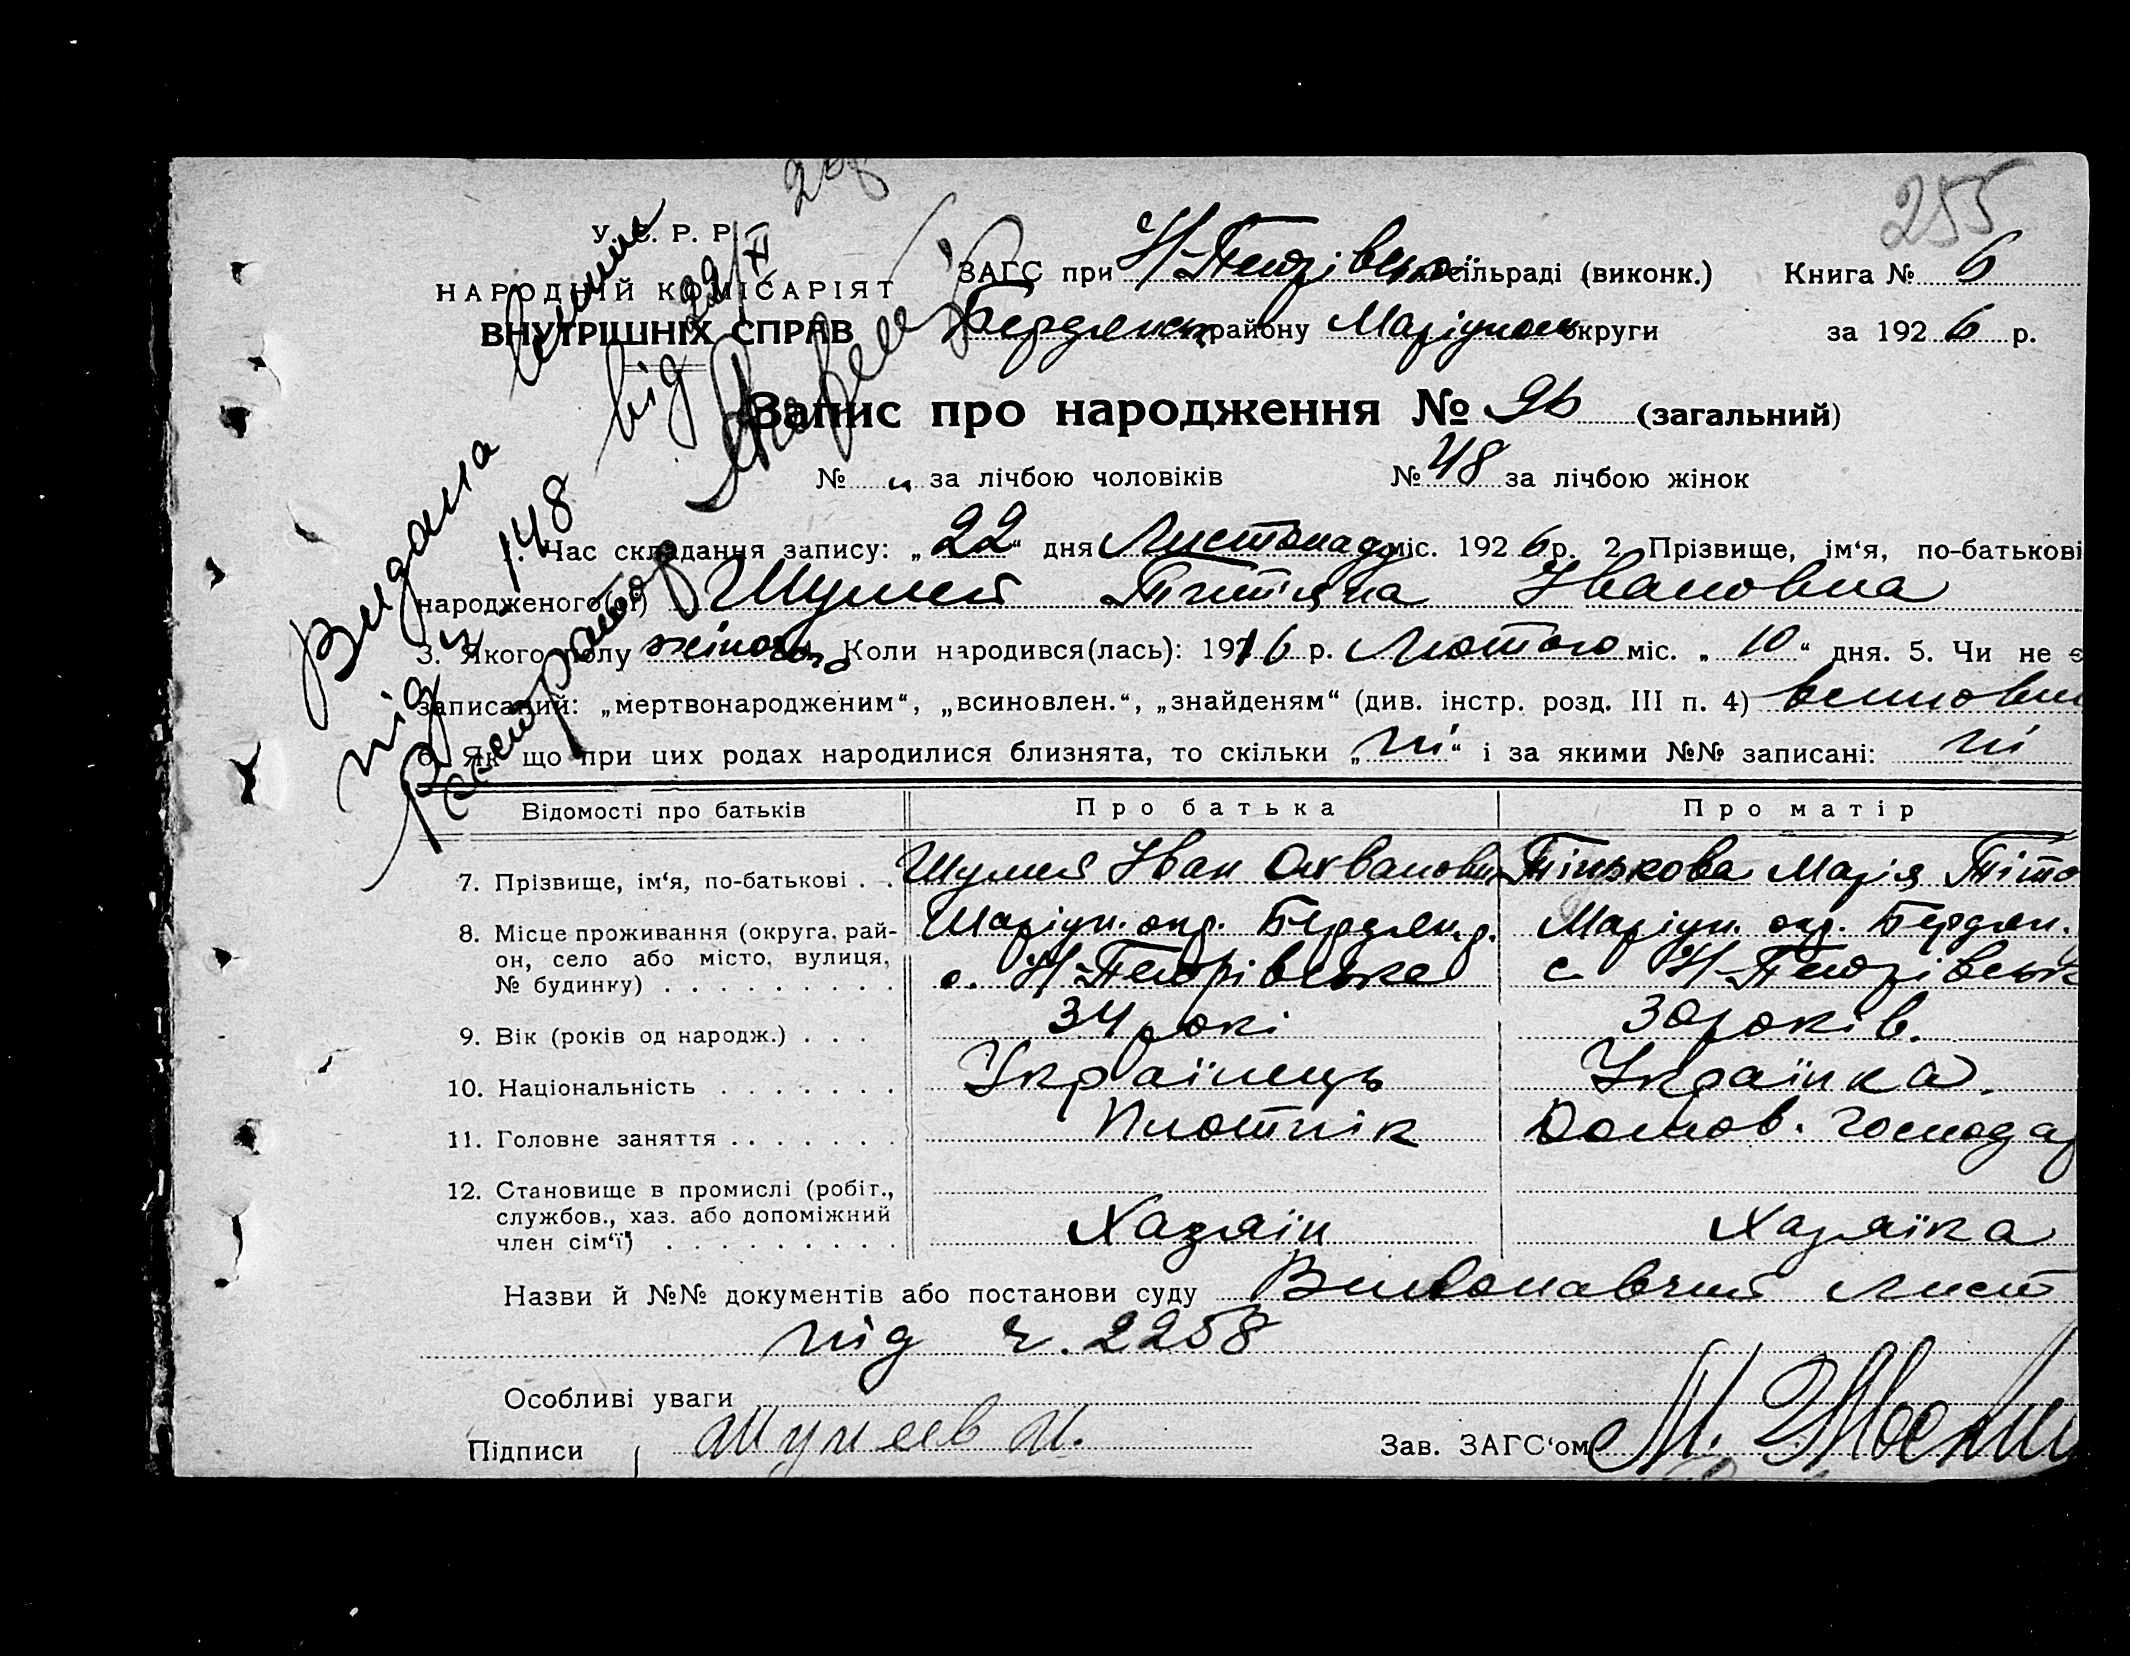 255
У. С. Р. Р.
НАРОДНІЙ КОМІСАРІЯТ
ВНУТРІШНІХ СПРАВ
ЗАГС при Н-Петрівській сільраді (виконк.) Книга № 6
Бердянськ району Маріупольс округи за 1926 р.
Запис про народження № 96 (загальний)
№ за лічбою чоловіків № 48 за лічбою жінок
Видана виписка
під ч 148 від 29/XI
Реєстратор
1. Час складання запису: „22“ дня Листопаду міс. 1926 р. 2. Прізвище, ім‘я, по-батькові
народженого(ої) Шумей Тітіяна Івановна
3. Якого полу жіночого Коли народився(лась): 1916 р. Лютого міс. „10“ дня. 5. Чи не є
записаний: „мертвонародженим“, „всиновлен.“, „знайденям“ (див. інстр. розд. III п. 4) всиновл
6. Як що при цих родах народилися близнята, то скільки „ні“ і за якими №№ записані: ні
Відомості про батьків Про батька Про матір
7. Прізвище, ім‘я, по-батькові . . Шумей Іван Тінькова Марія Тіто
8. Місце проживання (округа, рай-
он, село або місто, вулиця,
№ будинку) . . . . . . . . .
Маріуп. окр. Бердян. р. Маріуп. окр. Бердян.
с. Н-Петрівське с Н-Петрівськ
9. Вік (років од народж.) . . . 34 рокі 30 років.
10. Національність . . . . . . . Українець Українка.
11. Головне заняття . . . . . . . Плотнік Домов. господар
12. Становище в промислі (робіт.,
службов., хаз. або допоміжний
член сім‘ї) . . . . . . . . . Хазяїн Хазяїка
Назви й №№ документів або постанови суду Виконавчий лист
під ч. 2258
Особливі уваги
Підписи Шумеев И. Зав. ЗАГС‘ом